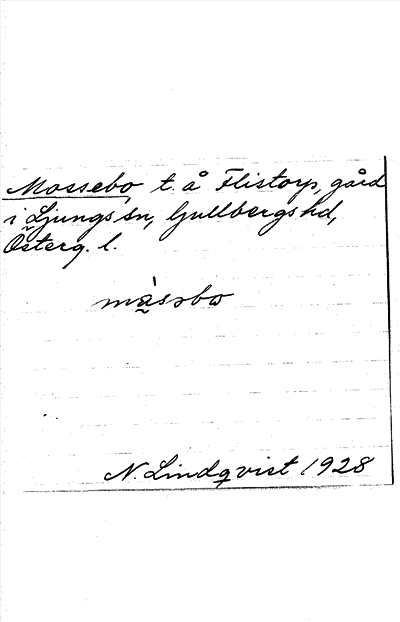 Mossebo, t. å Flistorp, gård
i Ljungs sn, Gullbergs hd,
Österg. l.
N. Lindqvist 1928